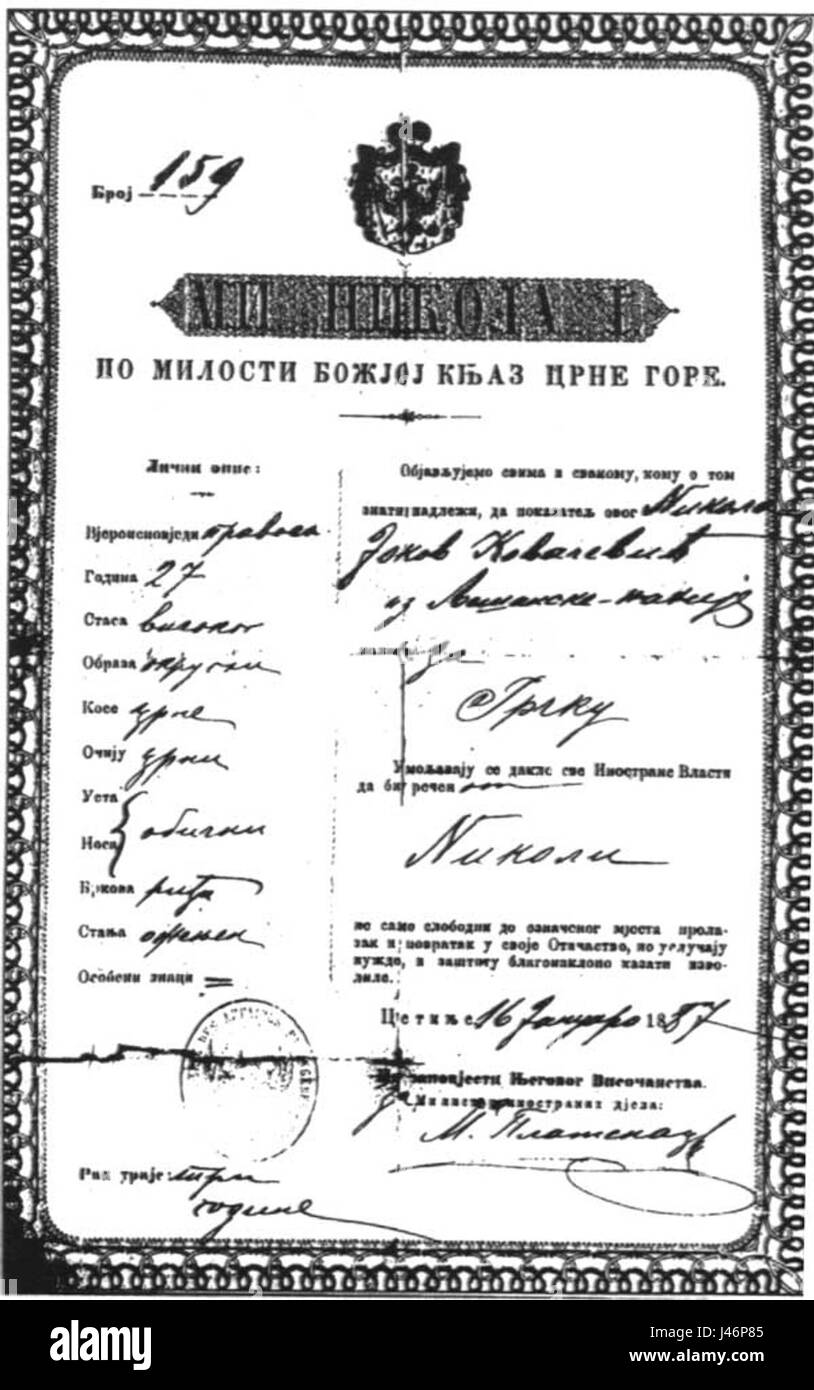 Број 159
МИ НИКОЛА I.
ПО МИЛОСТИ БОЖЈОЈ КЊАЗ ЦРНЕ ГОРЕ.
Лични опис:
Вјероисповједи правосл.
Година 27
Стаса високог
Образа
Косе црне
Очију црни
Уста
Носа } обични
Бркова
Стања ожењен
Особени знаци =
Рок траје: три
године
Објављујемо свима и свакому, кому о том
знати надлежи, да показатељ овог Никола
Јоков Ковачевић
из нахије
за
Грчку
Умољавају се дакле све Иностране Власти
да би речен
Николи
не само слободни до означеног мјеста прола-
зак и повратак у своје Отачаство, но у случају
нужде, и заштиту благонаклоно казати изво-
лиле.
Цетиње 16 Јануаро 1887
По заповјести Његовог Височанства.
Министар иностраних дјела:
М.
alamy
Image ID: J46P85
www.alamy.com